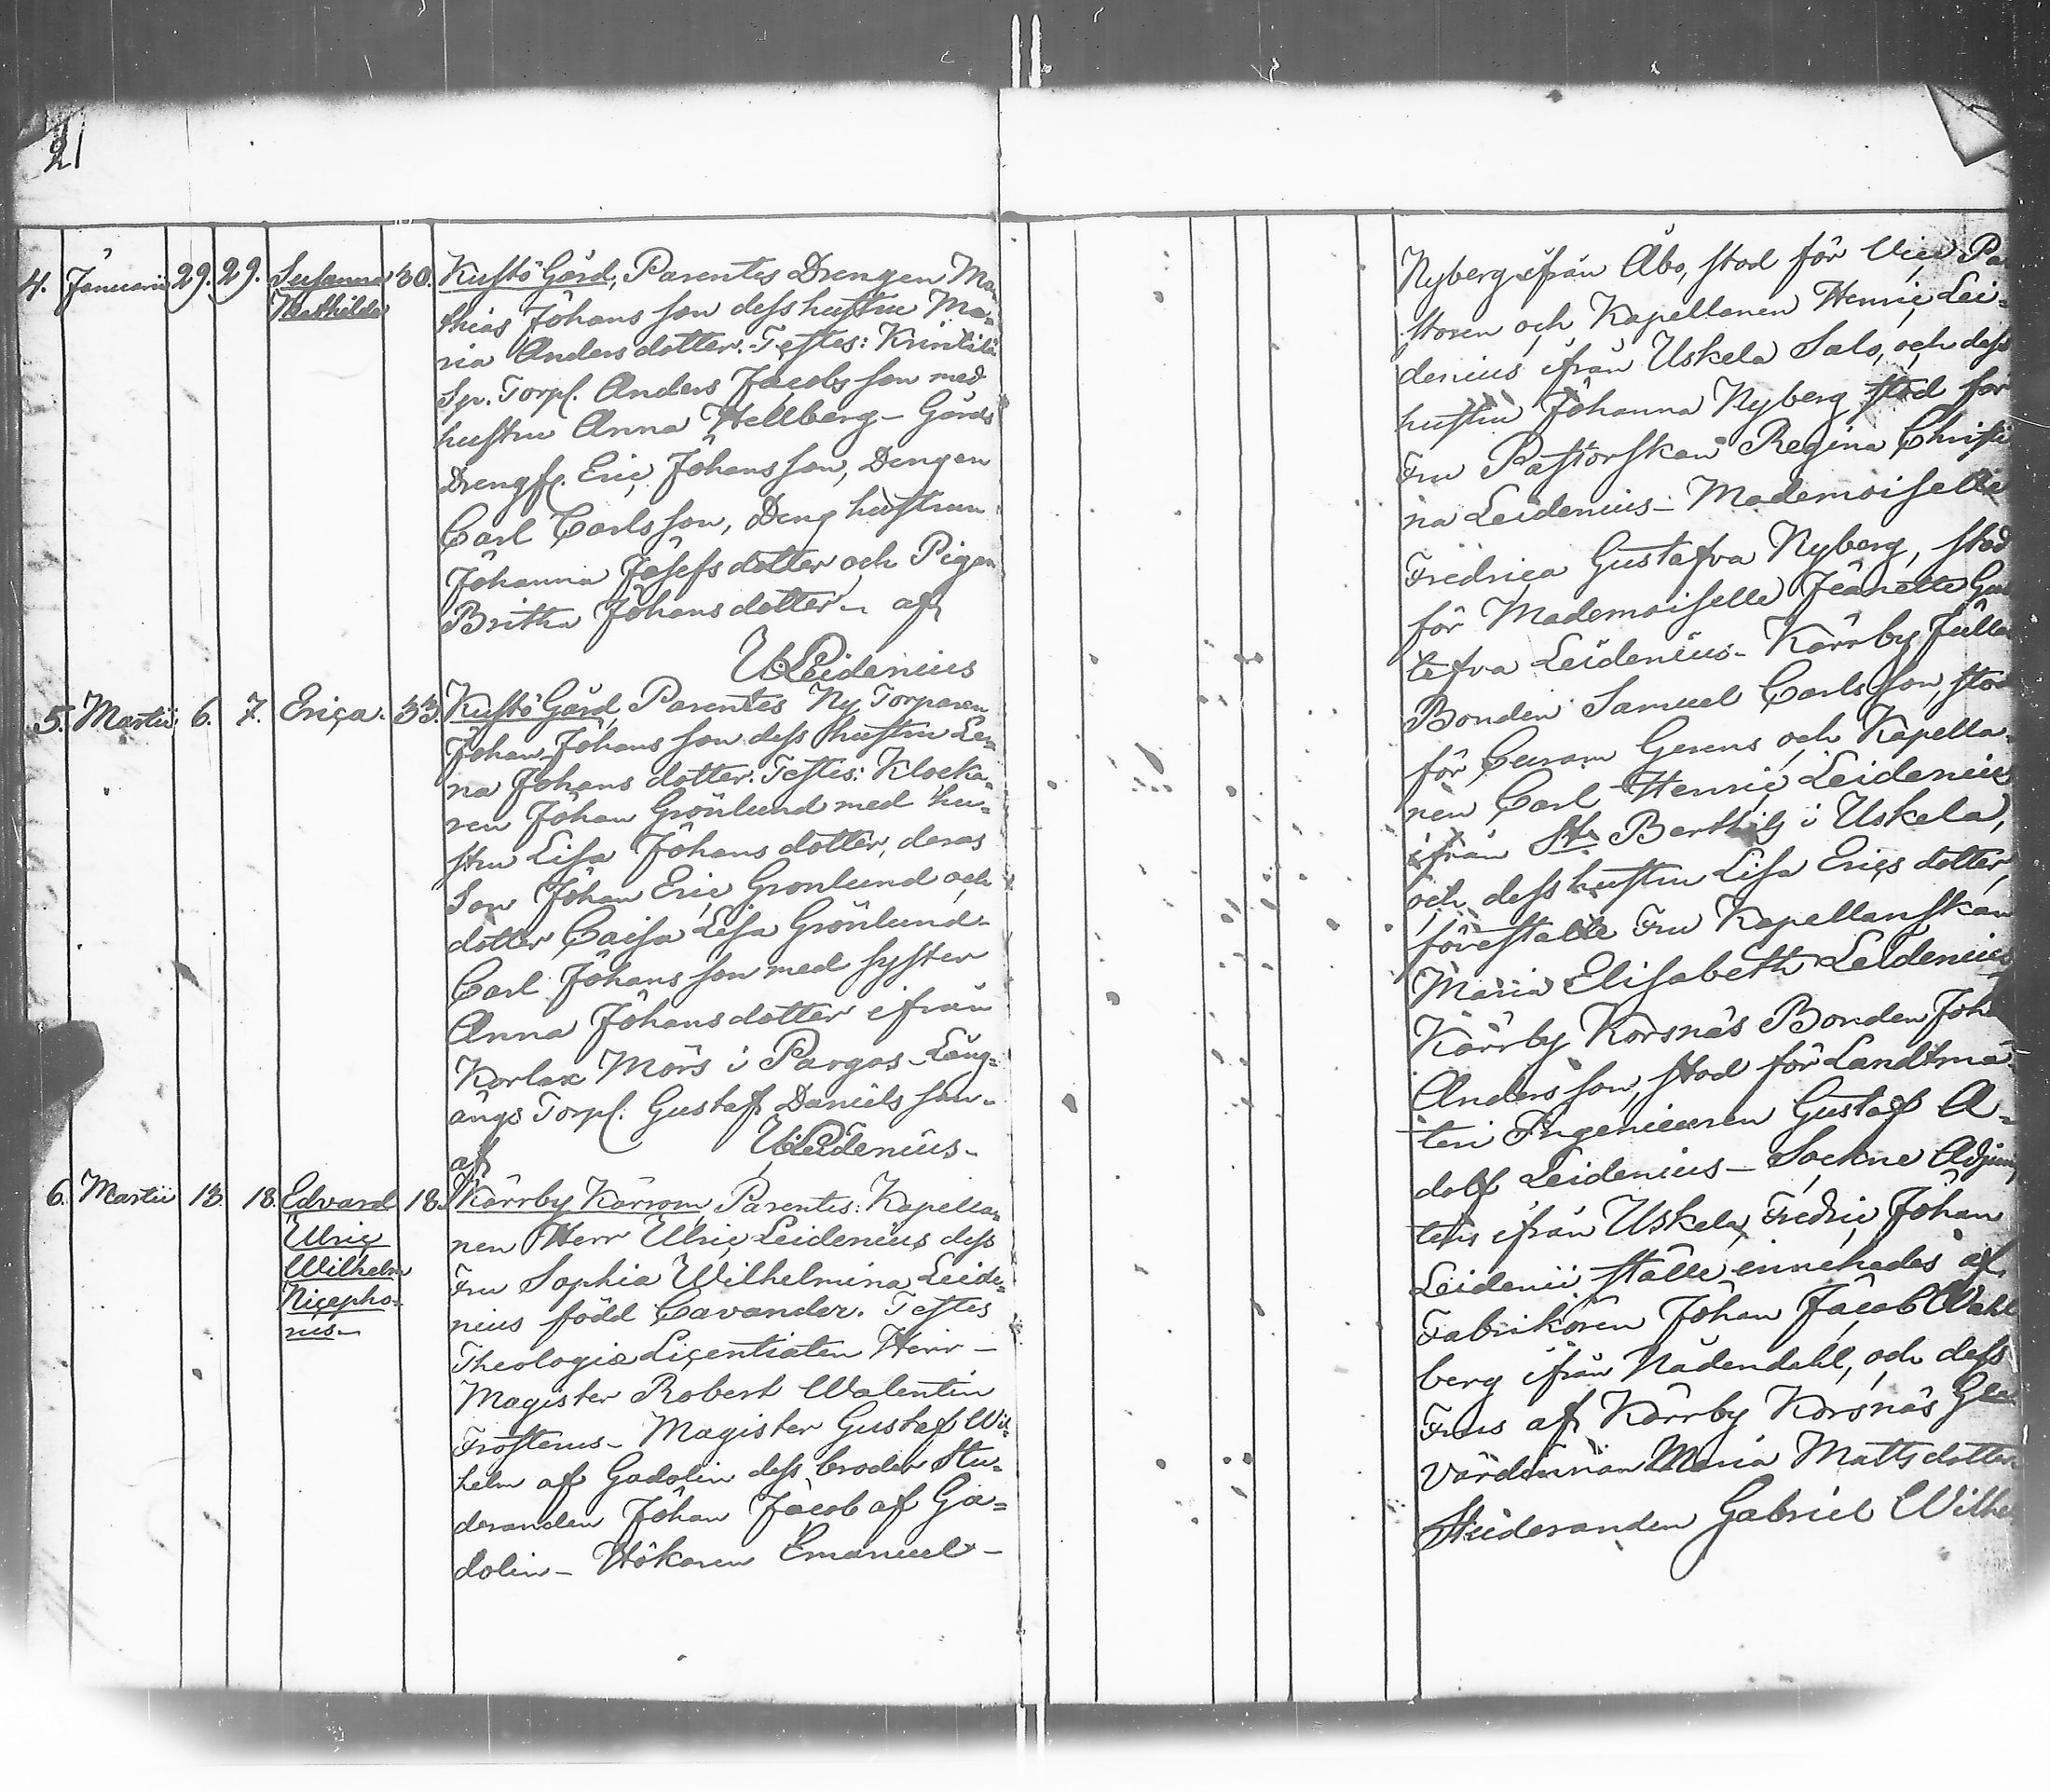 21
4. Januarii 29. 29. Susanna 30. Kustö Gård, Parentes Drengen Ma
Mathilda thias Johans son dess hustru Ma=
ria Anders dotter. Testes: Krintilä
Sp. Torpf. Anders Jacobs son med
hustru Anna Hellberg – Gårds
Drengfg. Eric Johansson, Drengen
Carl Carlsson, Dreng hustrun
Johanna Josefs dotter och Pigan
Britha Johans dotter – af
U Leidenius
5. Martii 6. 7. Erica. 33. Kustö Gård, Parentes Ny Torparen
Johan Johans son dess hustru Le=
na Johans dotter. Testes: Klocka=
ren Johan Grönlund med hu=
stru Lisa Johans dotter, deras
Son Johan Eric Gronlund och
dotter Caisa Lisa Grönlund –
Carl Johans son med syster
Anna Johans dotter ifrån
Korlax Mörs i Pargas – Lång=
ängs Torpf. Gustaf Daniels son –
af U Leidenius –
6. Martii 13. 18. Edvard 18. Kärrby Kärrom, Parentes: Kapella=
Ulric nen Herr Ulric Leidenius dess
Wilhelm Fru Sophia Wilhelmina Leide=
Nicepho= nius född Cavander. Testes
rus – Theologiæ Licentiaten Herr –
Magister Robert Walentin
Frosterus – Magister Gustaf Wil=
helm af Gadolin dess broder Stu=
deranden Johan Jacob af Ga=
dolin – Hökaren Emanuel –
Nyberg ifrån Åbo, stod för Vice Pa
storen och Kapellanen Henric Lei=
denius ifrån Uskela Salo, och dess
hustru Johanna Nyberg stod for
Fru Pastorskan Regina Christi
na Leidenius – Mademoiselle
Fredrica Gustafva Nyberg, stod
för Mademoiselle Jeanette Gus
tafva Leidenius – Kärrby Julla
Bonden Samuel Carlsson, stod
för Curam Gerens och Kapella=
nen Carl Henric Leidenius
ifrån St. Bertils i Uskela,
och dess hustru Lisa Erics dotter,
förestälte Fru Kapellanskan
Maria Elisabeth Leidenius
Kärrby Korsnäs Bonden Joh
Anders son, stod för Landtmä=
teri Ingenieuren Gustaf A=
dolf Leidenius – Sockne Adjunc
tens ifrån Uskela, Fredric Johan
Leidenii ställe innehades af
Fabrikören Johan Jacob Wahl
berg ifrån Nådendahl, och dess
Frus af Kärrby Korsnäs Gla
värdinnan Maria Matts dotter.
Studeranden Gabriel Wilhe